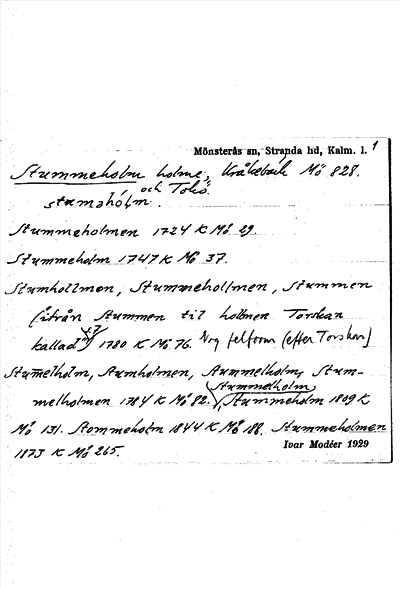 Mönsterås sn, Stranda hd, Kalm. l. 1
Stummeholm holme, Kråkebäck Mö 828.
och Tokö.
stuməhòlm.
Stummeholmen 1724 K Mö 29.
Stummeholm 1747 K Mö 37.
Stumhollmen, Stummehollmen, Stummen
(ifrån Stummen til holmen Torskan
kallad) 1780 K Mö 76. Nog felform (efter Torskan)
Stumelholm, Stumholmen, Stummelholm, Stum-
melholmen 1784 K Mö 82. Stummeholm 1809 K
Stummelholm
Mö 131. Stommeholm 1844 K Mö 188. Stummeholmen
Ivar Modéer 1929
1873 K Mö 265.